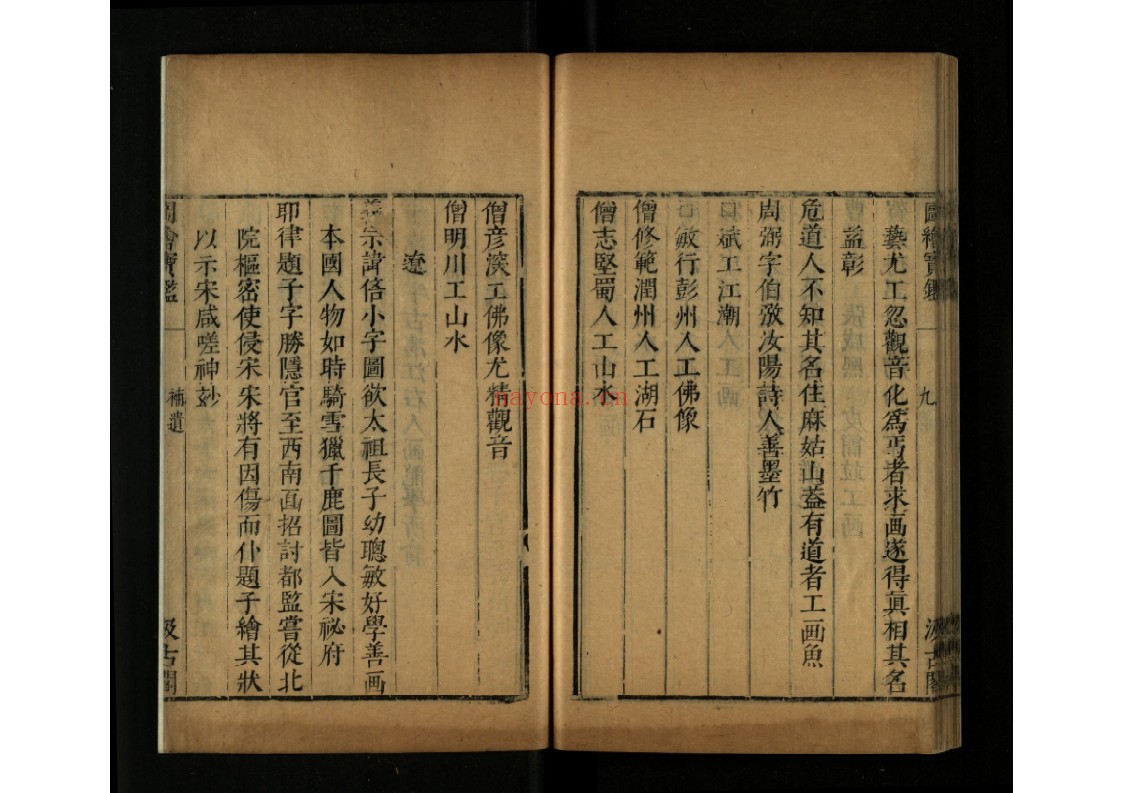 圖繪寶鑑
九
汲古閣
藝尤工忽觀音化爲丐者求画遂得眞相其名
益彰
危道人不知其名住麻姑山葢有道者工画魚
周弼字伯弜汝陽詩人善墨竹
斌工江潮
敏行彭州人工佛像
僧修範潤州人工湖石
僧志堅蜀人工山水
僧彦深工佛像尤精觀音
僧明川工山水
遼
義宗諱倍小字圖欲太祖長子幼聰敏好學善画
本國人物如時騎雪獵千鹿圖皆入宋祕府
耶律題子字勝隱官至西南面招討都監嘗從北
院樞密使侵宋宋將有因傷而仆題子繪其狀
以示宋咸嗟神玅
圖繪寶鑑
補遺
汲古閣
nayona.cn